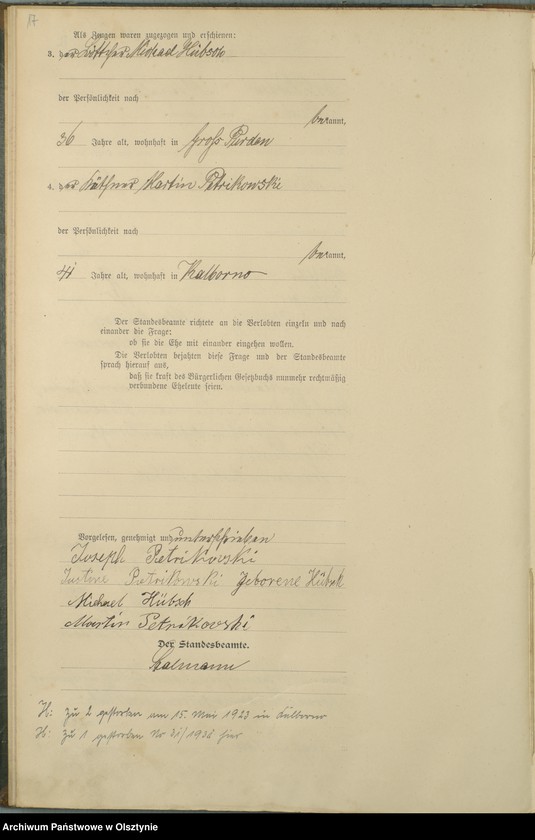 17
Als Zeugen waren zugezogen und erschienen:
3. der Michael Hübsch
der Persönlichkeit nach
bekannt,
36 Jahre alt, wohnhaft in Groß Purden
4. der Käthner Martin Petrikowski
der Persönlichkeit nach
bekannt,
41 Jahre alt, wohnhaft in Kalborno
Der Standesbeamte richtete an die Verlobten einzeln und nach
einander die Frage:
ob sie die Ehe mit einander eingehen wollen.
Die Verlobten bejahten diese Frage und der Standesbeamte
sprach hierauf aus,
daß sie kraft des Bürgerlichen Gesetzbuchs nunmehr rechtmäßig
verbundene Eheleute seien.
Vorgelesen, genehmigt und unterschrieben
Joseph Pietrikowski
Justine Pietrikowski geborene Hübsch
Michael Hübsch
Martin Petrikowski
Der Standesbeamte.
H: zu 2 gestorben am 15. Mai 1923 in Kalborno
H: zu 1 gestorben Nr 21/1936 hier
Archiwum Państwowe w Olsztynie